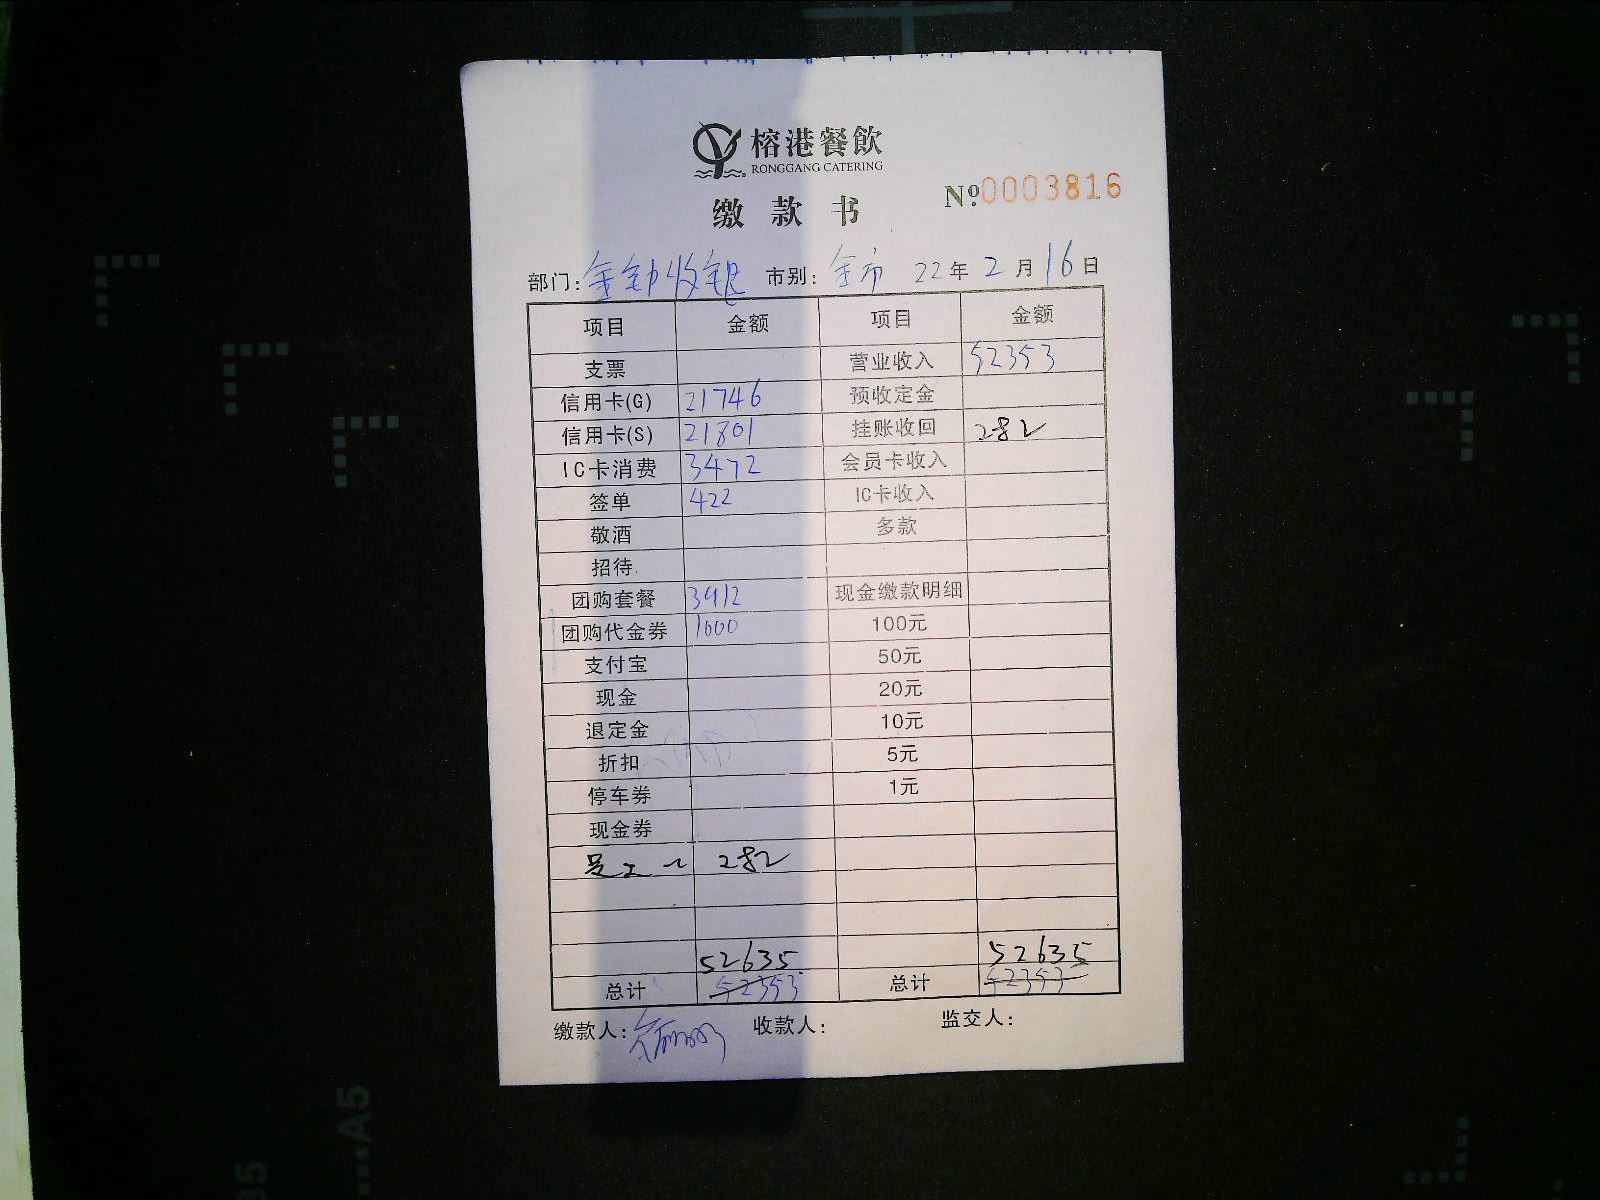 榕港餐飲
RONGGANG CATERING
缴款书 №0003816
部门: 金钟收银 市别: 全市 22年2月16日
项目 金额 项目 金额
支票 营业收入 52353
信用卡(G) 21746 预收定金
信用卡(S) 21801 挂账收回 282
IC卡消费 3472 会员卡收入
签单 422 IC卡收入
敬酒 多款
招待
团购套餐 3912 现金缴款明细
团购代金券 1000 100元
支付宝 50元
现金 20元
退定金 10元
折扣 5元
停车券 1元
现金券
282
52635 52635
总计 52353 总计 52353
缴款人: 收款人: 监交人:
A5
B5